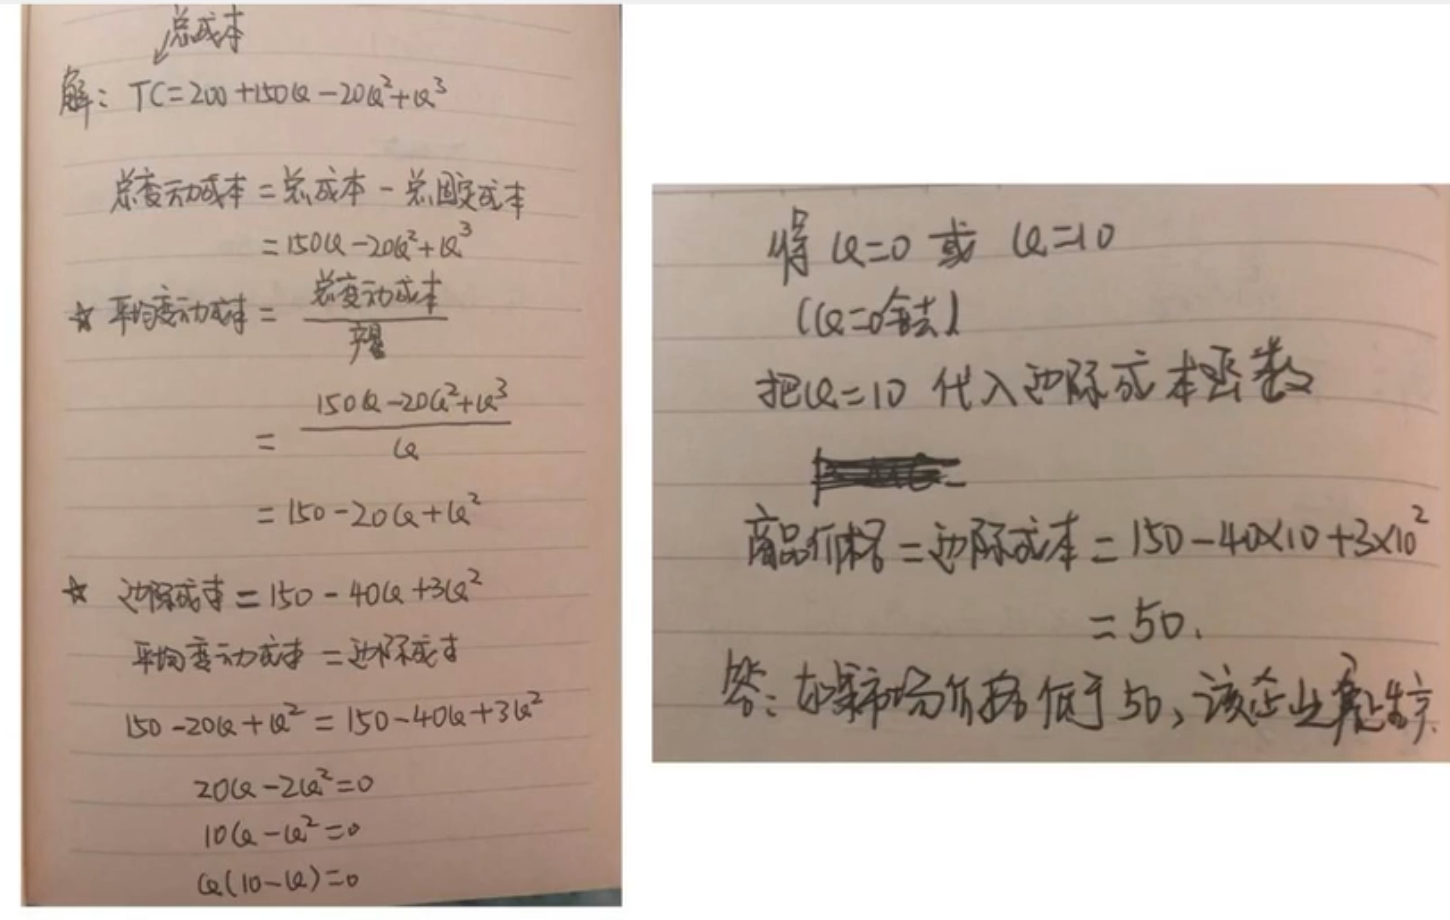 总成本
解：TC=200+150Q-20Q²+Q³
总变动成本=总成本-总固定成本
=150Q-20Q²+Q³
☆ 平均变动成本=总变动成本/产量
=150Q-20Q²+Q³/Q
=150-20Q+Q²
☆ 边际成本=150-40Q+3Q²
平均变动成本=边际成本
150-20Q+Q²=150-40Q+3Q²
20Q-2Q²=0
10Q-Q²=0
Q(10-Q)=0
得Q=0或Q=10
(Q=0舍去)
把Q=10代入边际成本函数
商品价格=边际成本=150-40×10+3×10²
=50.
答：如果市场价格低于50，该企业生产.